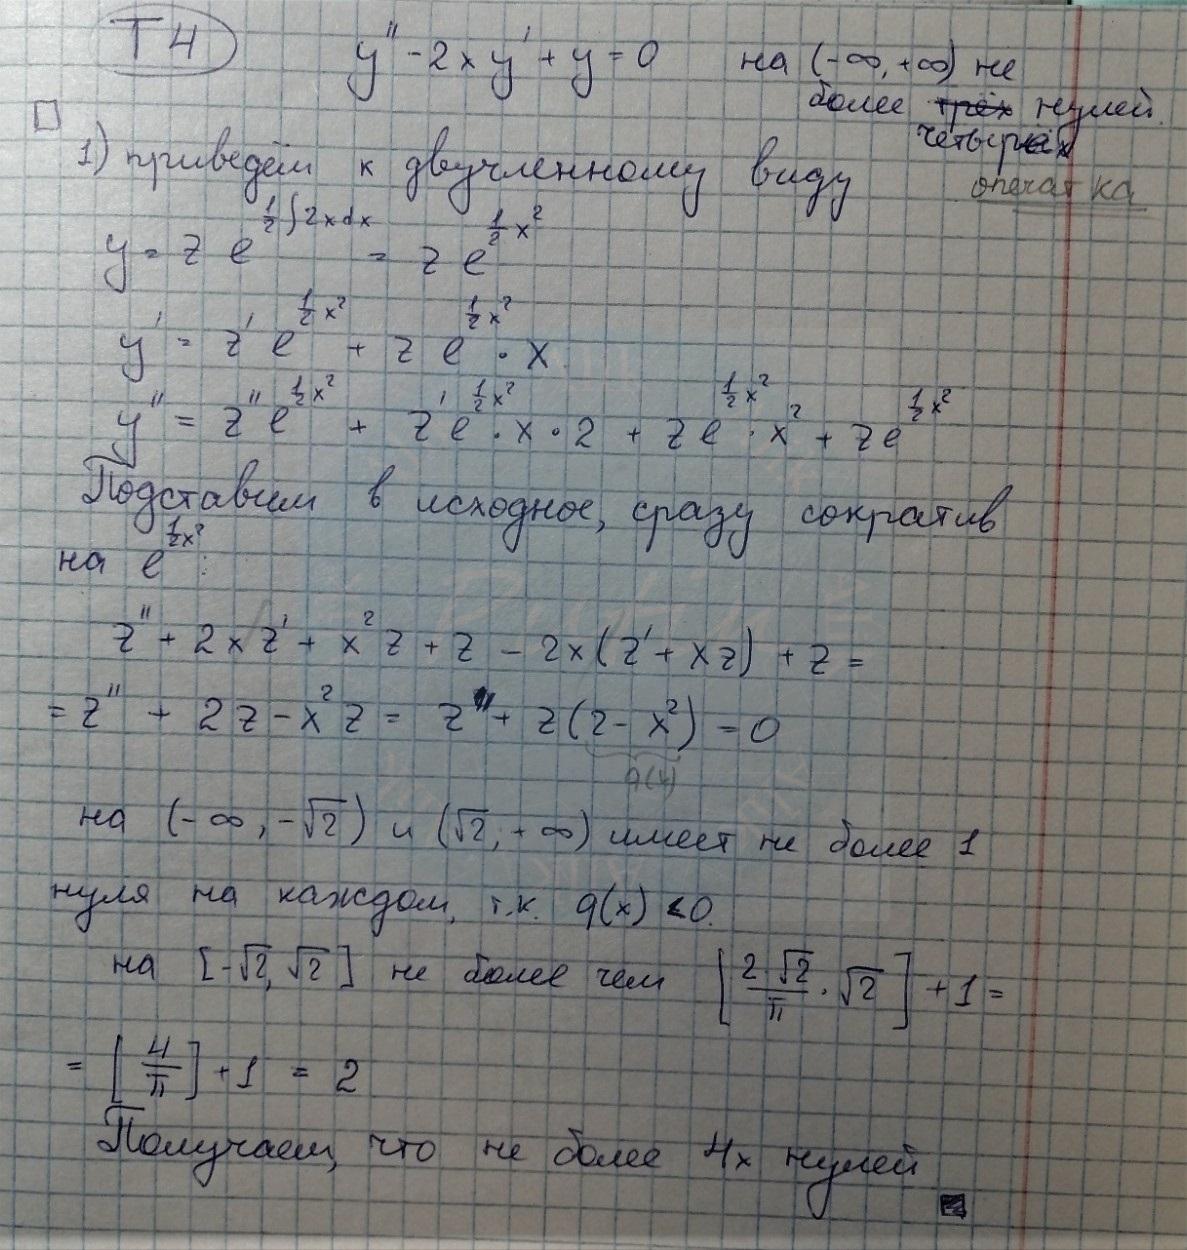 T4
y'' - 2xy' + y = 0 на (-∞, +∞) не
более трёх нулей.
четырёх
опечатка
1) приведём к двучленному виду
y = z e^{\frac{1}{2}∫2xdx} = z e^{\frac{1}{2}x^2}
y' = z' e^{\frac{1}{2}x^2} + z e^{\frac{1}{2}x^2} · x
y'' = z'' e^{\frac{1}{2}x^2} + z' e^{\frac{1}{2}x^2} · x · 2 + z e^{\frac{1}{2}x^2} · x^2 + z e^{\frac{1}{2}x^2}
Подставим в исходное, сразу сократив
на e^{\frac{1}{2}x^2}:
z'' + 2xz' + x^2 z + z - 2x(z' + xz) + z =
= z'' + 2z - x^2 z = z'' + z(2 - x^2) = 0
q(x)
на (-∞, -√2) и (√2, +∞) имеет не более 1
нуля на каждом, т.к. q(x) < 0.
на [-√2, √2] не более чем [\frac{2√2}{π} · √2] + 1 =
= [\frac{4}{π}] + 1 = 2
Получаем, что не более 4х нулей